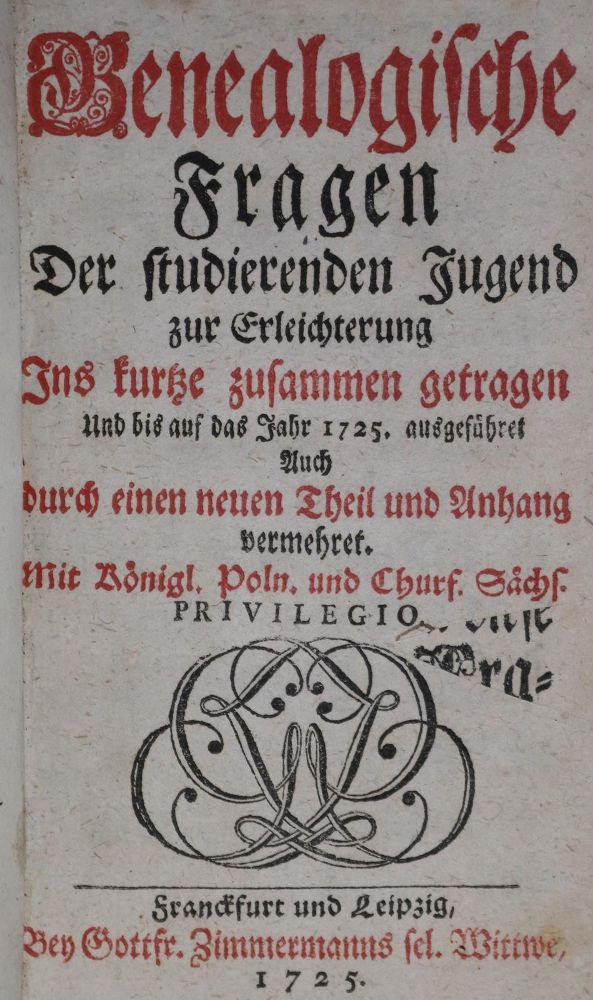 Genealogische
Fragen
Der studierenden Jugend
zur Erleichterung
Ins kurtze zusammen getragen
Und bis auf das Jahr 1725. ausgeführet
Auch
durch einen neuen Theil und Anhang
vermehret.
Mit Königl. Poln. und Churf. Sächs.
PRIVILEGIO
Gra=
Franckfurt und Leipzig,
Bey Gottfr. Zimmermanns sel. Wittwe,
1725.